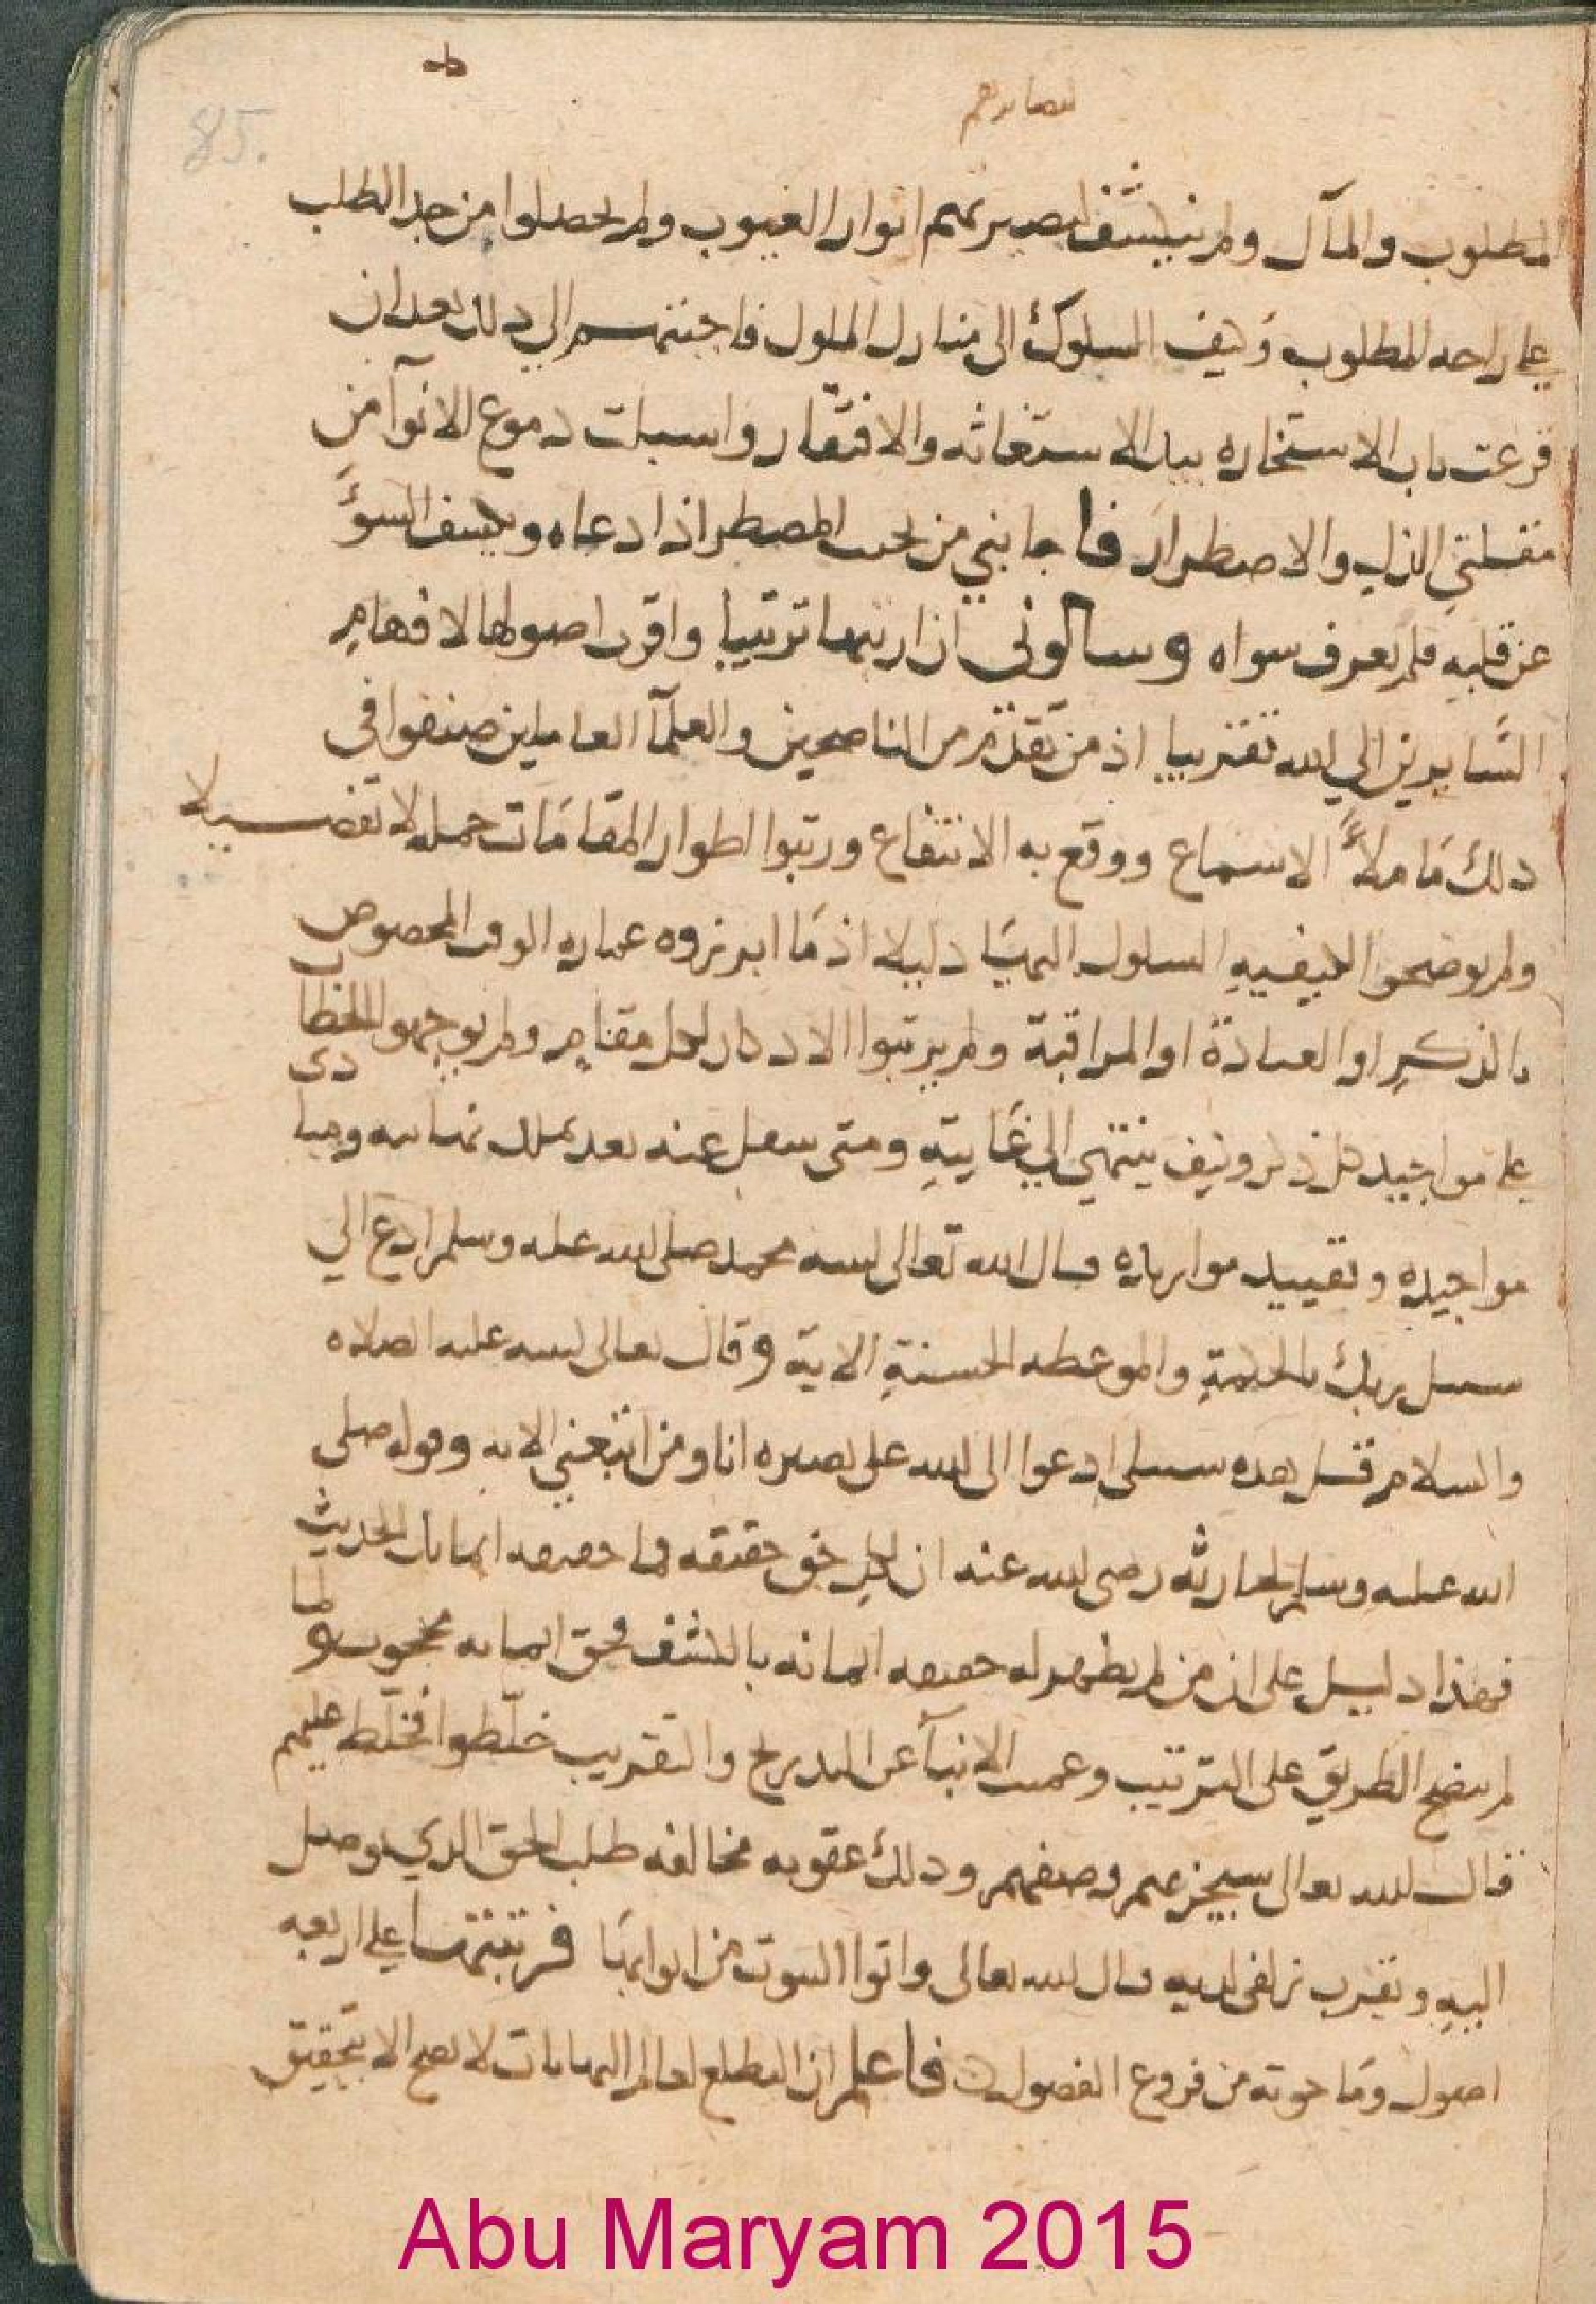 ط
لبصائرهم
85.
المطلوب والمآل ولم ينكشف لبصيرتهم انوار الغيوب ولم يحصلوا من جد الطلب
على راحه المطلوب وكيف السلوك الى منازل الملوك فاجبتهم الي ذلك بعد ان
قرعت باب الاستخاره بيد الاستغاثه والافتقار واسبلت دموع الانوآ من
مقلتي الذل والاضطرار فاجابني من يجيب المضطر اذا دعاه ويكشف السوء
عن قلبه فلم يعرف سواه وسالوني ان ارتبها ترتيبا واقرب اصولها لافهام
السَّايرين الي الله تقريبا اذ من تقدّم من الناصحين والعلمآ العاملين صنفوا في
ذلك مَا ملأ الاسماع ووقع به الانتفاع ورتبوا اطوار المقامَات جمله لا تفصيلا
ولم يوضحوا لكيفيهِ السلوك اليهَا دليلا اذ مَا ابرزوه عباره الوقت المخصوص
بالذكرِ او العبادة او المراقبة ولم يرتبوا الاذكار لكل مقام ولم يوجهوا الخطاب
على مواجيد كل ذكر وكيف ينتهي الي غَايتهِ ومتى ينتقل عنه بعد تملك نهايته ومبادى
مواجيده وتقييد موارده قال الله تعالى لنبيه محمد صلى الله عليه وسلم ادع الي
سبيل ربك بالحكمةِ والموعظه الحسنةِ الاية وقال تعالى لنبيه عليه الصلاه
والسلام قل هذه سبيلى ادعوا الى الله على بصيره انا ومن اتبعني الايه وقوله صلى
الله عليه وسلم لحارثه رضى الله عنه ان لكل حق حقيقه فما حقيقه ايمانك الحديث
فهذا دليل على ان من لم يظهر له حقيقه ايمانه بالكشف فحق ايمانه محجوب ولما
لم يتضح الطريق على الترتيب وعميت الانبآ عن التدريج والتقريب خلّطوا فخلّط عليهم
قال الله تعالى سيجزيهم وصفهم وذلك عقوبه مخالفه طلب الحق الذي يوصل
اليهِ ويقرب زلفى لديه قال الله تعالى واتوا البيوت من ابوابهَا فرتبتها على اربعه
اصول ومَا حوته من فروع الفصول فاعلم ان التطلع لعالم النهايات لا يصح الا بتحقيق
Abu Maryam 2015